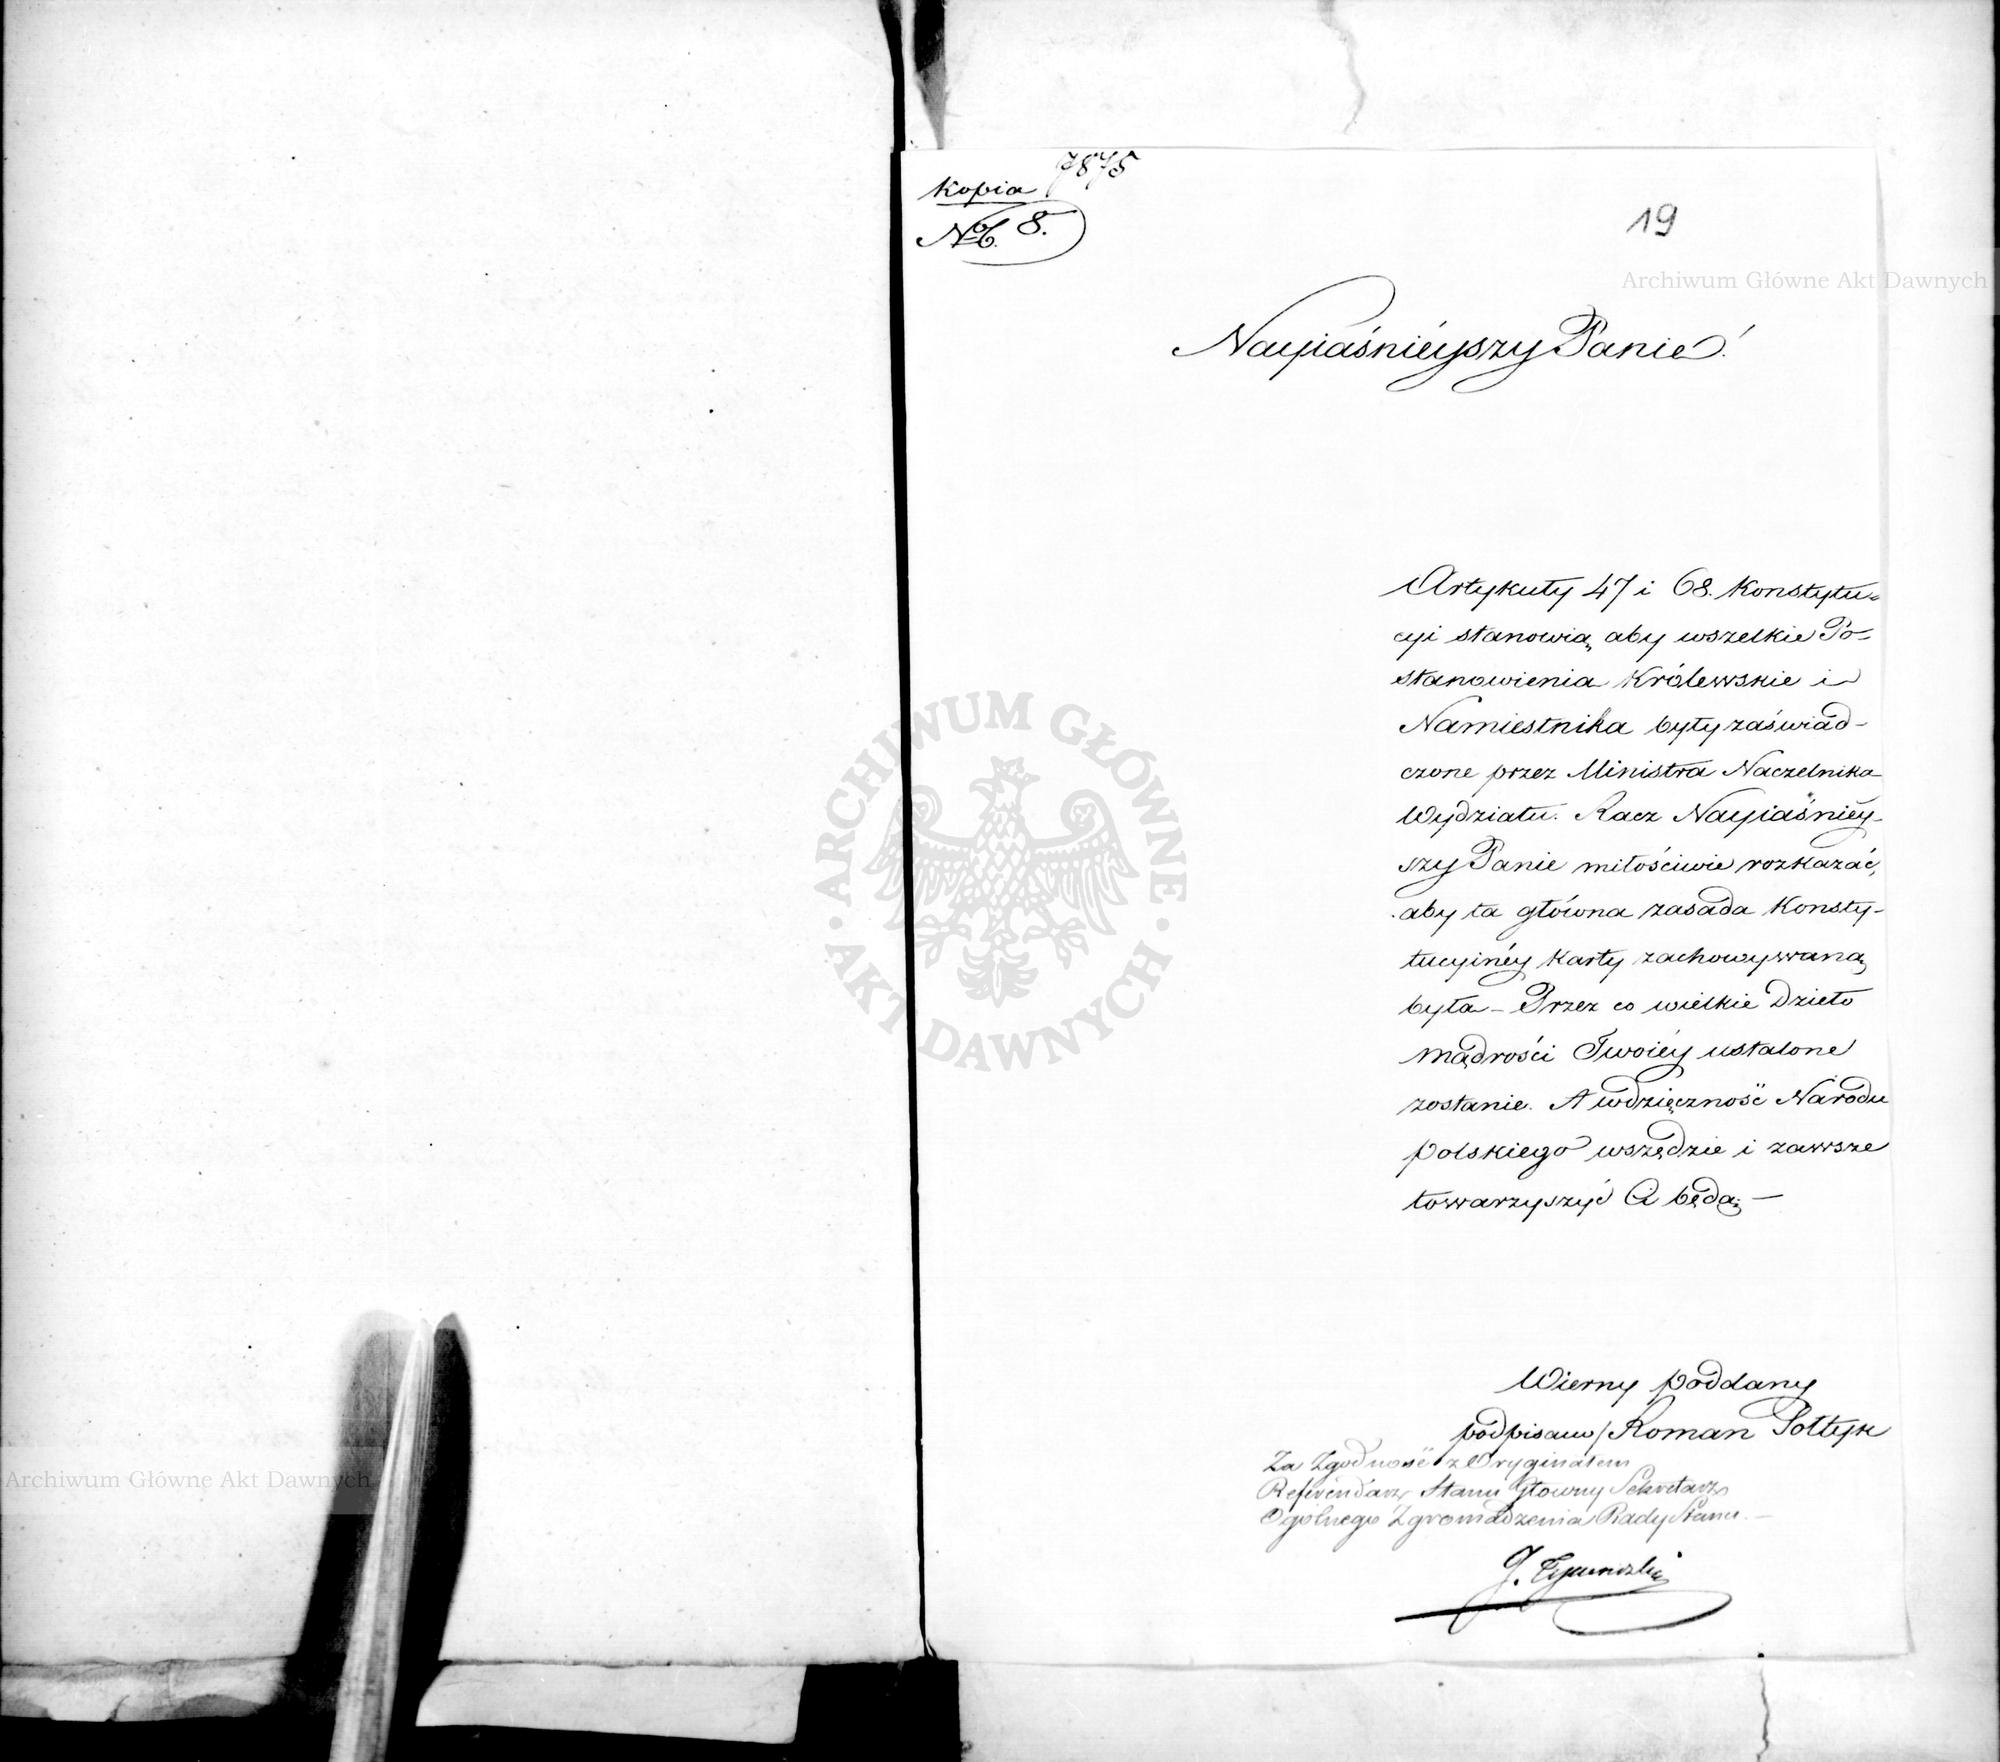 7875
Kopia
No 8.
19
Archiwum Główne Akt Dawnych
Nayiaśnieyszy Panie!
Artykuły 47 i 68. Konstytu-
cyi stanowią, aby wszelkie Po-
stanowienia Królewskie i
Namiestnika były zaświad-
czone przez Ministra Naczelnika
Wydziału. Racz Nayiaśniéy-
szy Panie miłościwie rozkazać,
aby ta główna zasada Konsty-
tucyinéy Karty zachowywaną
była – Przez co wielkie Dzieło
mądrości Twoiéy ustalone
zostanie. A wdzięczność Narodu
polskiego wszędzie i zawsze
towarzyszyć Ci będą; –
ARCHIWUM GŁÓWNE · AKT DAWNYCH ·
Wierny poddany
podpisano/ Roman Sołtyk
Za Zgodność z Oryginałem
Referendarz Stanu Głowny Sekretarz
Ogólnego Zgromadzenia Rady Stanu. –
J. Tymowski
Archiwum Główne Akt Dawnych